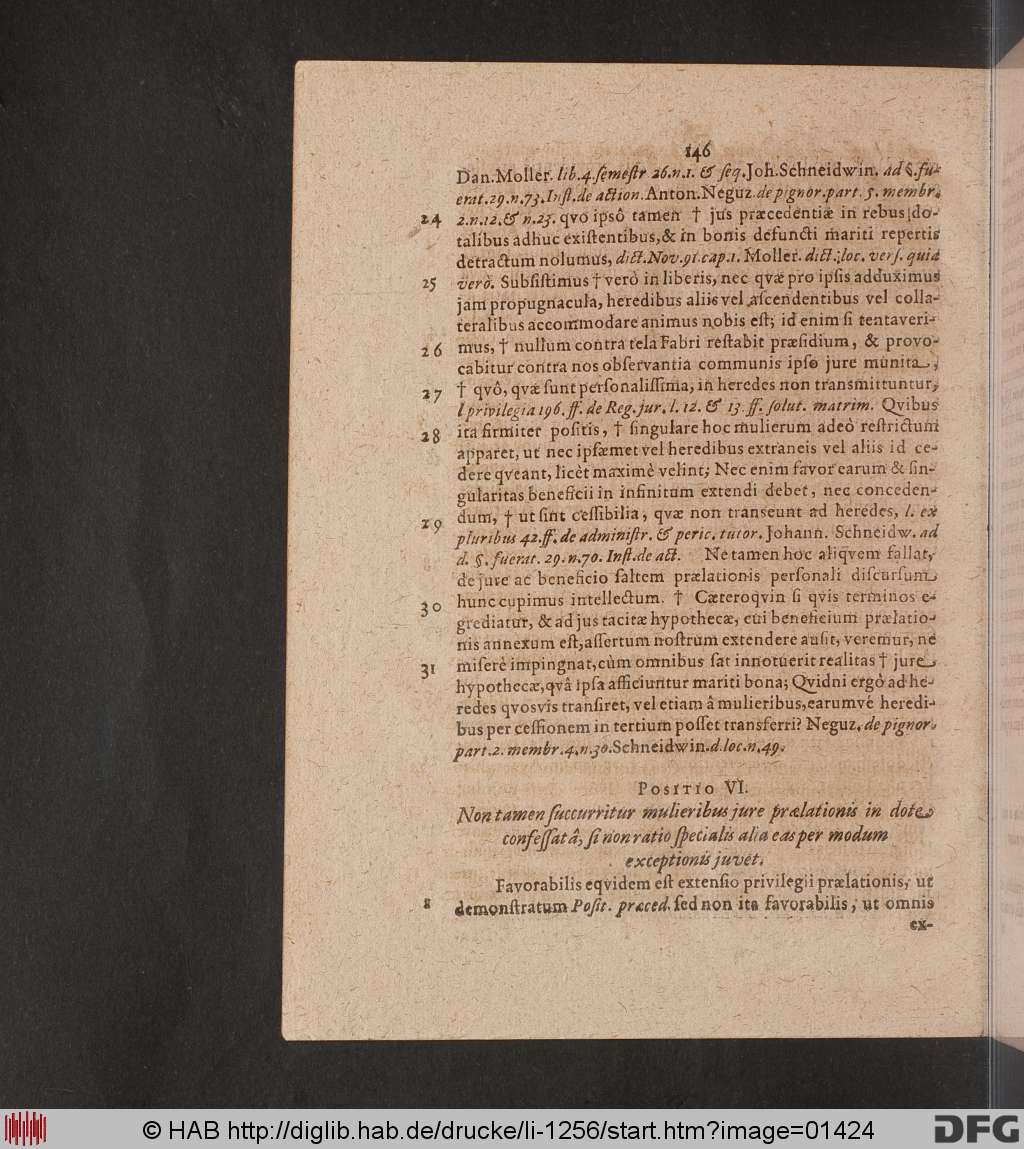 146
Dan. Moller. lib. 4. ſemeſtr 26. n. 1. & ſeq. Joh. Schneidwin. ad §. fu-
erat. 29. n. 73. Inſt. de action. Anton. Neguz. de pignor. part. 5. membr.
24 2. n. 12. & n. 23. qvo ipsô tamen † jus præcedentiæ in rebus do-
talibus adhuc exiſtentibus, & in bonis defuncti mariti repertis
detractum nolumus, dict. Nov. 91. cap. 1. Moller. dict. loc. verſ. quid
25 verò. Subſiſtimus † verò in liberis, nec qvæ pro ipſis adduximus
jam propugnacula, heredibus aliis vel aſcendentibus vel colla-
teralibus accommodare animus nobis eſt; id enim ſi tentaveri-
26 mus, † nullum contra tela Fabri reſtabit præſidium, & provo-
cabitur contra nos obſervantia communis ipſo jure munita,
27 † qvô, qvæ ſunt perſonaliſſima, in heredes non transmittuntur,
l privilegia 196. ff. de Reg. jur. l. 12. & 13. ff. ſolut. matrim. Qvibus
28 ita firmiter poſitis, † ſingulare hoc mulierum adeò reſtrictum
apparet, ut nec ipſæmet vel heredibus extraneis vel aliis id ce-
dere qveant, licèt maximè velint; Nec enim favor earum & ſin-
gularitas beneficii in infinitum extendi debet, nec conceden-
29 dum, † ut ſint ceſſibilia, qvæ non transeunt ad heredes, l. ex
pluribus 42. ff. de adminiſtr. & peric. tutor. Johann. Schneidw. ad
d. §. fuerat. 29. n. 70. Inſt. de act. Ne tamen hoc aliqvem fallat,
de jure ac beneficio ſaltem prælationis perſonali diſcurſum
30 hunc cupimus intellectum. † Cæteroqvin ſi qvis terminos e-
grediatur, & ad jus tacitæ hypothecæ, cui beneficium prælatio-
nis annexum eſt, aſſertum noſtrum extendere auſit, veremur, ne
31 miſerè impingnat, cùm omnibus ſat innotuerit realitas † jure
hypothecæ, qvâ ipſa afficiuntur mariti bona; Qvidni ergò ad he-
redes qvosvis tranſiret, vel etiam â mulieribus, earumvé heredi-
bus per ceſſionem in tertium poſſet transferri? Neguz. de pignor.
part. 2. membr. 4. n. 30. Schneidwin. d. loc. n. 49.
POSITIO VI.
Non tamen ſuccurritur mulieribus jure prælationis in dote
confeſſatâ, ſi non ratio ſpecialis alia eas per modum
exceptionis juvet.
Favorabilis eqvidem eſt extenſio privilegii prælationis, ut
1 demonſtratum Poſit. præced. ſed non ita favorabilis, ut omnis
ex-
© HAB http://diglib.hab.de/drucke/li-1256/start.htm?image=01424
DFG